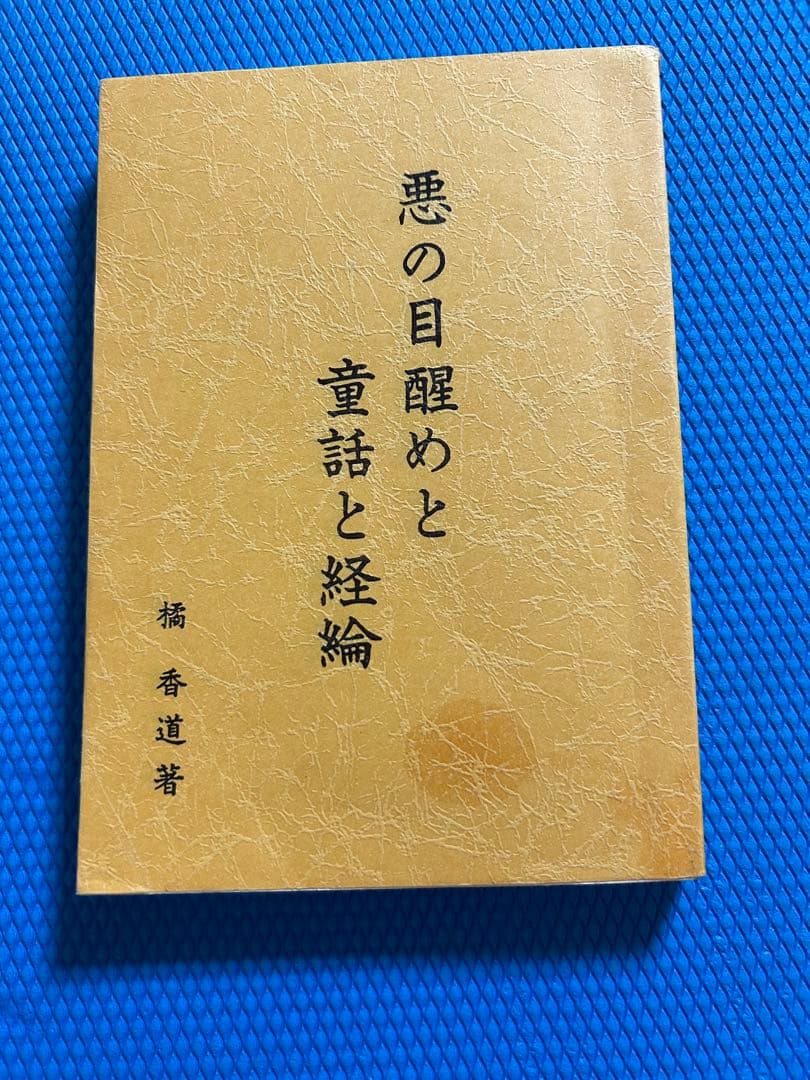 悪の目醒めと
童話と経綸
橘香道著